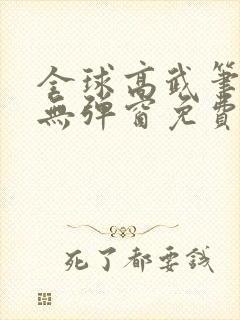 全球高武筆
無彈窗免費
死了都要錢